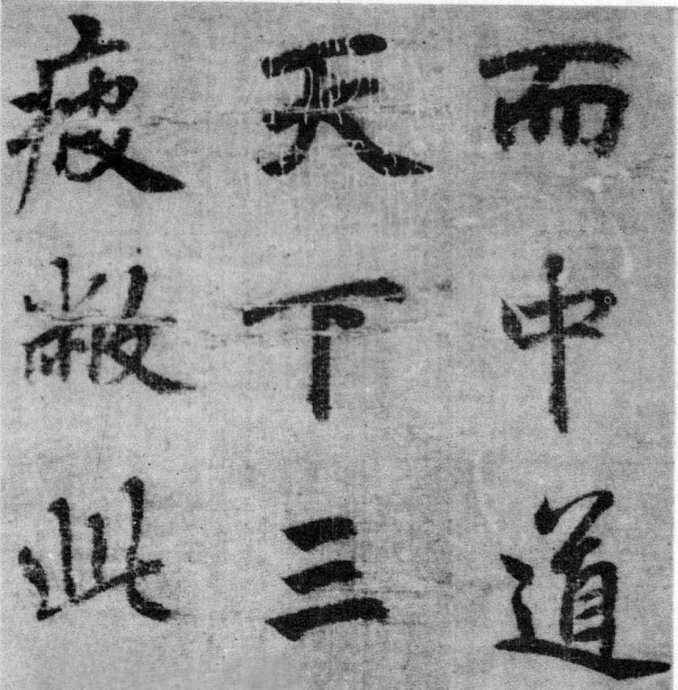 而中道
天下三
疲敝此